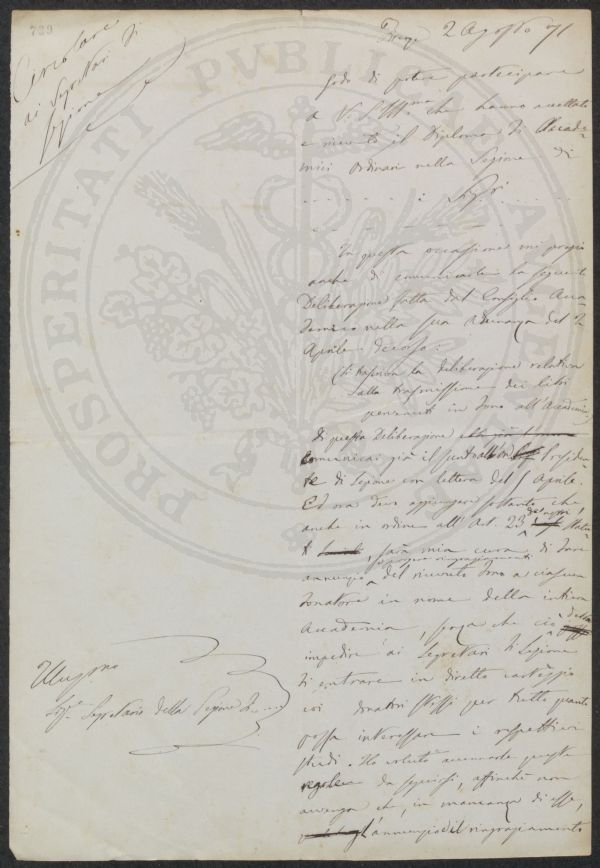 739
Circolare
ai Segretari di
Sezione
Firenze 2 Agosto 71
Godo di poter partecipare
a V. S. Ill.ma che hanno accettato
e ricevuto il Diploma di Accade-
mici Ordinari nella Sezione di
. . . . . . i Sig.ri . . . . .
In questa occasione mi pregio
anche di comunicarle la seguente
Deliberazione fatta dal Consiglio Acca-
demico nella sua adunanza del 2
Aprile decorso:
(Si trascriva la deliberazione relativa
alla trasmissione dei libri
pervenuti in dono all'Accademia)
Di questa Deliberazione
comunicai già il sunto Preside-
te di Sezione con lettera del Aprile.
Ed ora devo aggiungere soltanto che,
anche in ordine all'Art. 23 dei nuovi Statu-
ti, sarà mia cura di dare
annunzio e porgere ringraziamenti del ricevuto dono a ciascun
donatore in nome della intiera
Accademia, senza che ciò debba
impedire ai Segretari di Sezione
di entrare in diretto carteggio
coi donatori stessi per tutto quanto
possa interessare i rispettivi
studi. Ho voluto accennarle questa
regola da seguirsi, affinchè non
avvenga che, in mancanza di essa,
l'annunzio ed il ringraziamento
Ill.mo
Sig.re Segretario della Sezione di ....
PROSPERITATI PVBLICAE